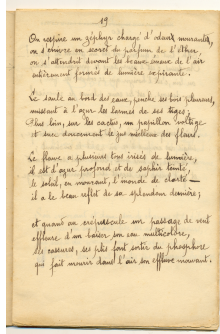 19
On respire un zéphyr chargé d'odeurs mourantes,
on s'enivre en secret du parfum de l'éther,
on s'attendrit devant les beaux vases de l'air
entièrement formés de lumière expirante.
Le saule au bord des eaux, penche ses bois pleureurs,
unissant à l'azur les larmes de ses tiges;
Plus loin, sur les cactus, un papillon voltige
et suce doucement le jus mielleux des fleurs.
Le fleuve a plusieurs tons irisés de lumière,
il est d'azur profond et de saphir teinté,
le soleil, en mourant, l'inonde de clarté
il a le beau reflet de sa splendeur dernière;
et quand au crépuscule un passage de vent
effleure d'un baiser son eau multicolore,
les cassures, ses plis font sortir du phosphore
qui fait mourir dans l'air son effluve mouvant.